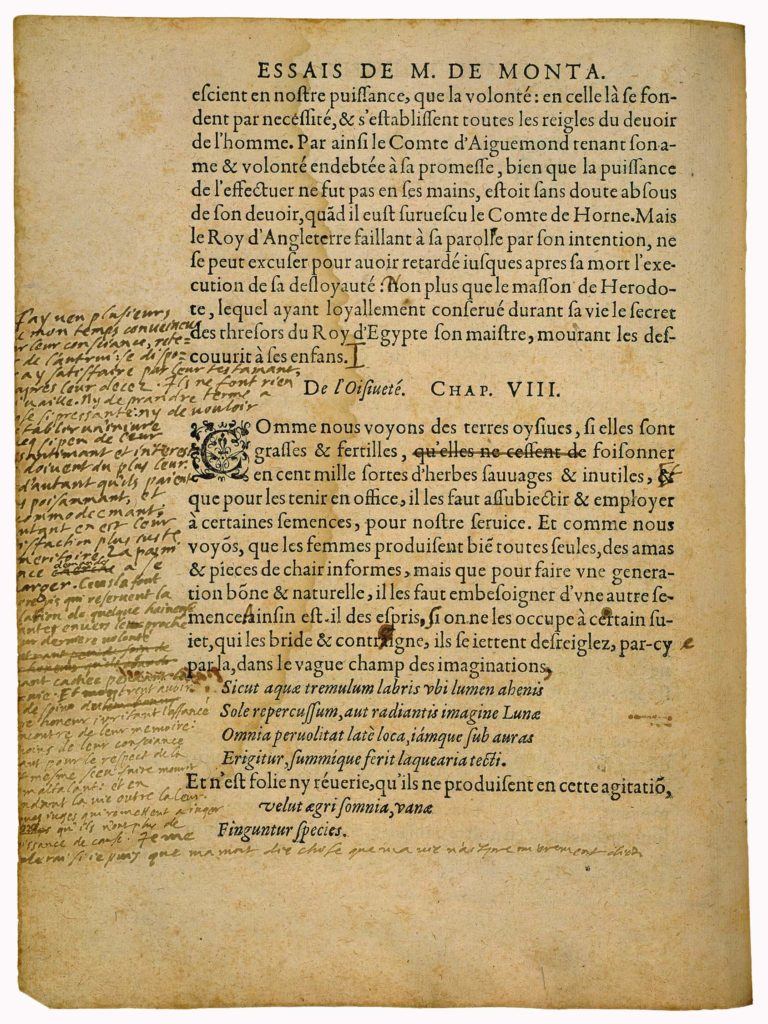 ESSAIS DE M. DE MONTA.
escient en nostre puissance, que la volonté: en celle là se fon-
dent par necessité, & s'establissent toutes les reigles du deuoir
de l'homme. Par ainsi le Comte d'Aiguemond tenant son a-
me & volonté endebtée à sa promesse, bien que la puissance
de l'effectuer ne fut pas en ses mains, estoit sans doute absous
de son deuoir, quãd il eust suruescu le Comte de Horne. Mais
le Roy d'Angleterre faillant à sa parolle par son intention, ne
se peut excuser pour auoir retardé iusques apres sa mort l'exe-
cution de sa desloyauté: Non plus que le masson de Herodo-
te, lequel ayant loyallement conserué durant sa vie le secret
des thresors du Roy d'Egypte son maistre, mourant les des-
couurit à ses enfans.
De l'Oisiueté. CHAP. VIII.
COmme nous voyons des terres oysiues, si elles sont
grasses & fertilles, qu'elles ne cessent de foisonner
en cent mille sortes d'herbes sauuages & inutiles, &
que pour les tenir en office, il les faut assubiectir & employer
à certaines semences, pour nostre seruice. Et comme nous
voyõs, que les femmes produisent biẽ toutes seules, des amas
& pieces de chair informes, mais que pour faire vne genera-
tion bõne & naturelle, il les faut embesoigner d'vne autre se-
mence: Ainsin est-il des espris, si on ne les occupe à certain su-
iet, qui les bride & contraigne, ils se iettent desreiglez, par-cy
par la, dans le vague champ des imaginations,
Sicut aquæ tremulum labris vbi lumen ahenis
Sole repercussum, aut radiantis imagine Lunæ
Omnia peruolitat latè loca, iámque sub auras
Erigitur, summique ferit laquearia tecti.
Et n'est folie ny réuerie, qu'ils ne produisent en cette agitatiõ,
velut ægri somnia, vanæ
Finguntur species.
J'ay veu plusieurs
de mon temps conveincus
leur consciance, rete-
de l'autrui se dispo-
a y satisfaire par leur testamant,
apres leur decez. Ils ne font rien
vaille. Ny de prandre terme a
se si pressante: ny de vouloir
establir un injure
si peu de leur
santimant et interest
doivent du plus leur
d'autant qu'ils paient
poisammant, et
commodeemant:
autant en est leur
satisfaction plus juste
meritoire. La pœni-
a se
Ceus la font
qui reservent la
de quelque haineuse
envers le proche
leur derniere volonté
cachée
Et
de leur memoire:
moins de leur consciance
pour le respect de la
mort mesme sceu faire mourir
maltalant: et en
la vie outre la leur.
juges qui remettent a juger
qu'ils n'ont plus de
conoissance de cause. Je me
garderai si je puis que ma mort die chose que ma vie n'ait premierement dit